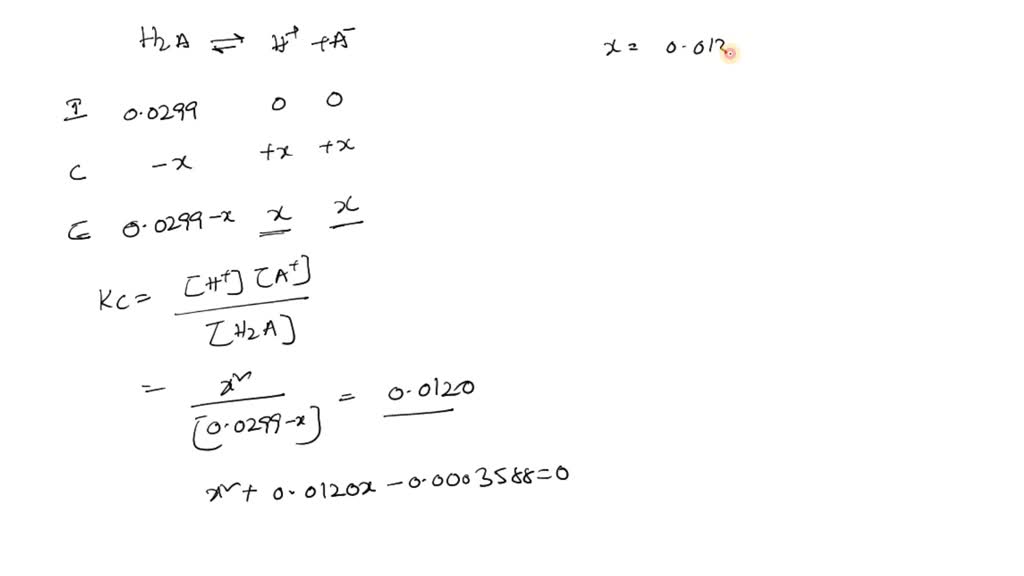 H₂A ⇌ H⁺ + A⁻
x = 0.012
I 0.0299 0 0
C -x +x +x
E 0.0299-x x x
Kc = [H⁺] [A⁺]
[H₂A]
= x² = 0.0120
[0.0299-x]
x² + 0.0120x - 0.0003588=0